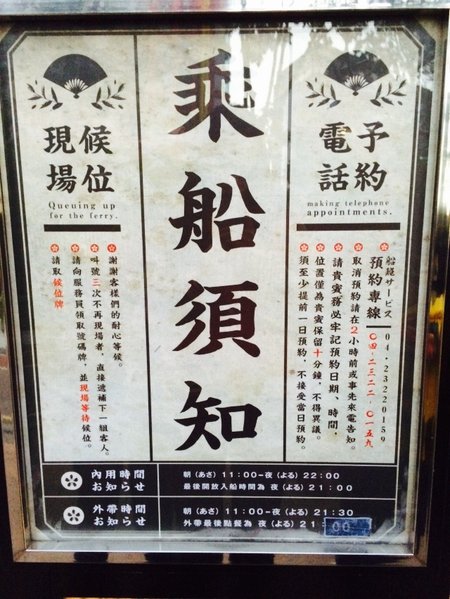 電話
予約
making telephone
appointments.
サービス 04-23220159
預約專線 〇四-二三二二-〇一五九
取消預約請在2小時前或事先來電告知。
請貴賓務必牢記預約日期、時間,
位置僅為貴賓保留十分鐘,不得異議。
須至少提前一日預約,不接受當日預約。
乘船須知
現場
候位
Queuing up
for the ferry.
謝謝客樣們的耐心等候。
叫號三次不再現場者,直接遞補下一組客人。
請向服務員領取號碼牌,並現場等待候位。
請取候位牌
內用時間
お知らせ
朝(あさ) 11:00-夜(よる) 22:00
最後開放入船時間為 夜(よる) 21:00
外帶時間
お知らせ
朝(あさ) 11:00-夜(よる) 21:30
外帶最後點餐為 夜(よる) 21:00